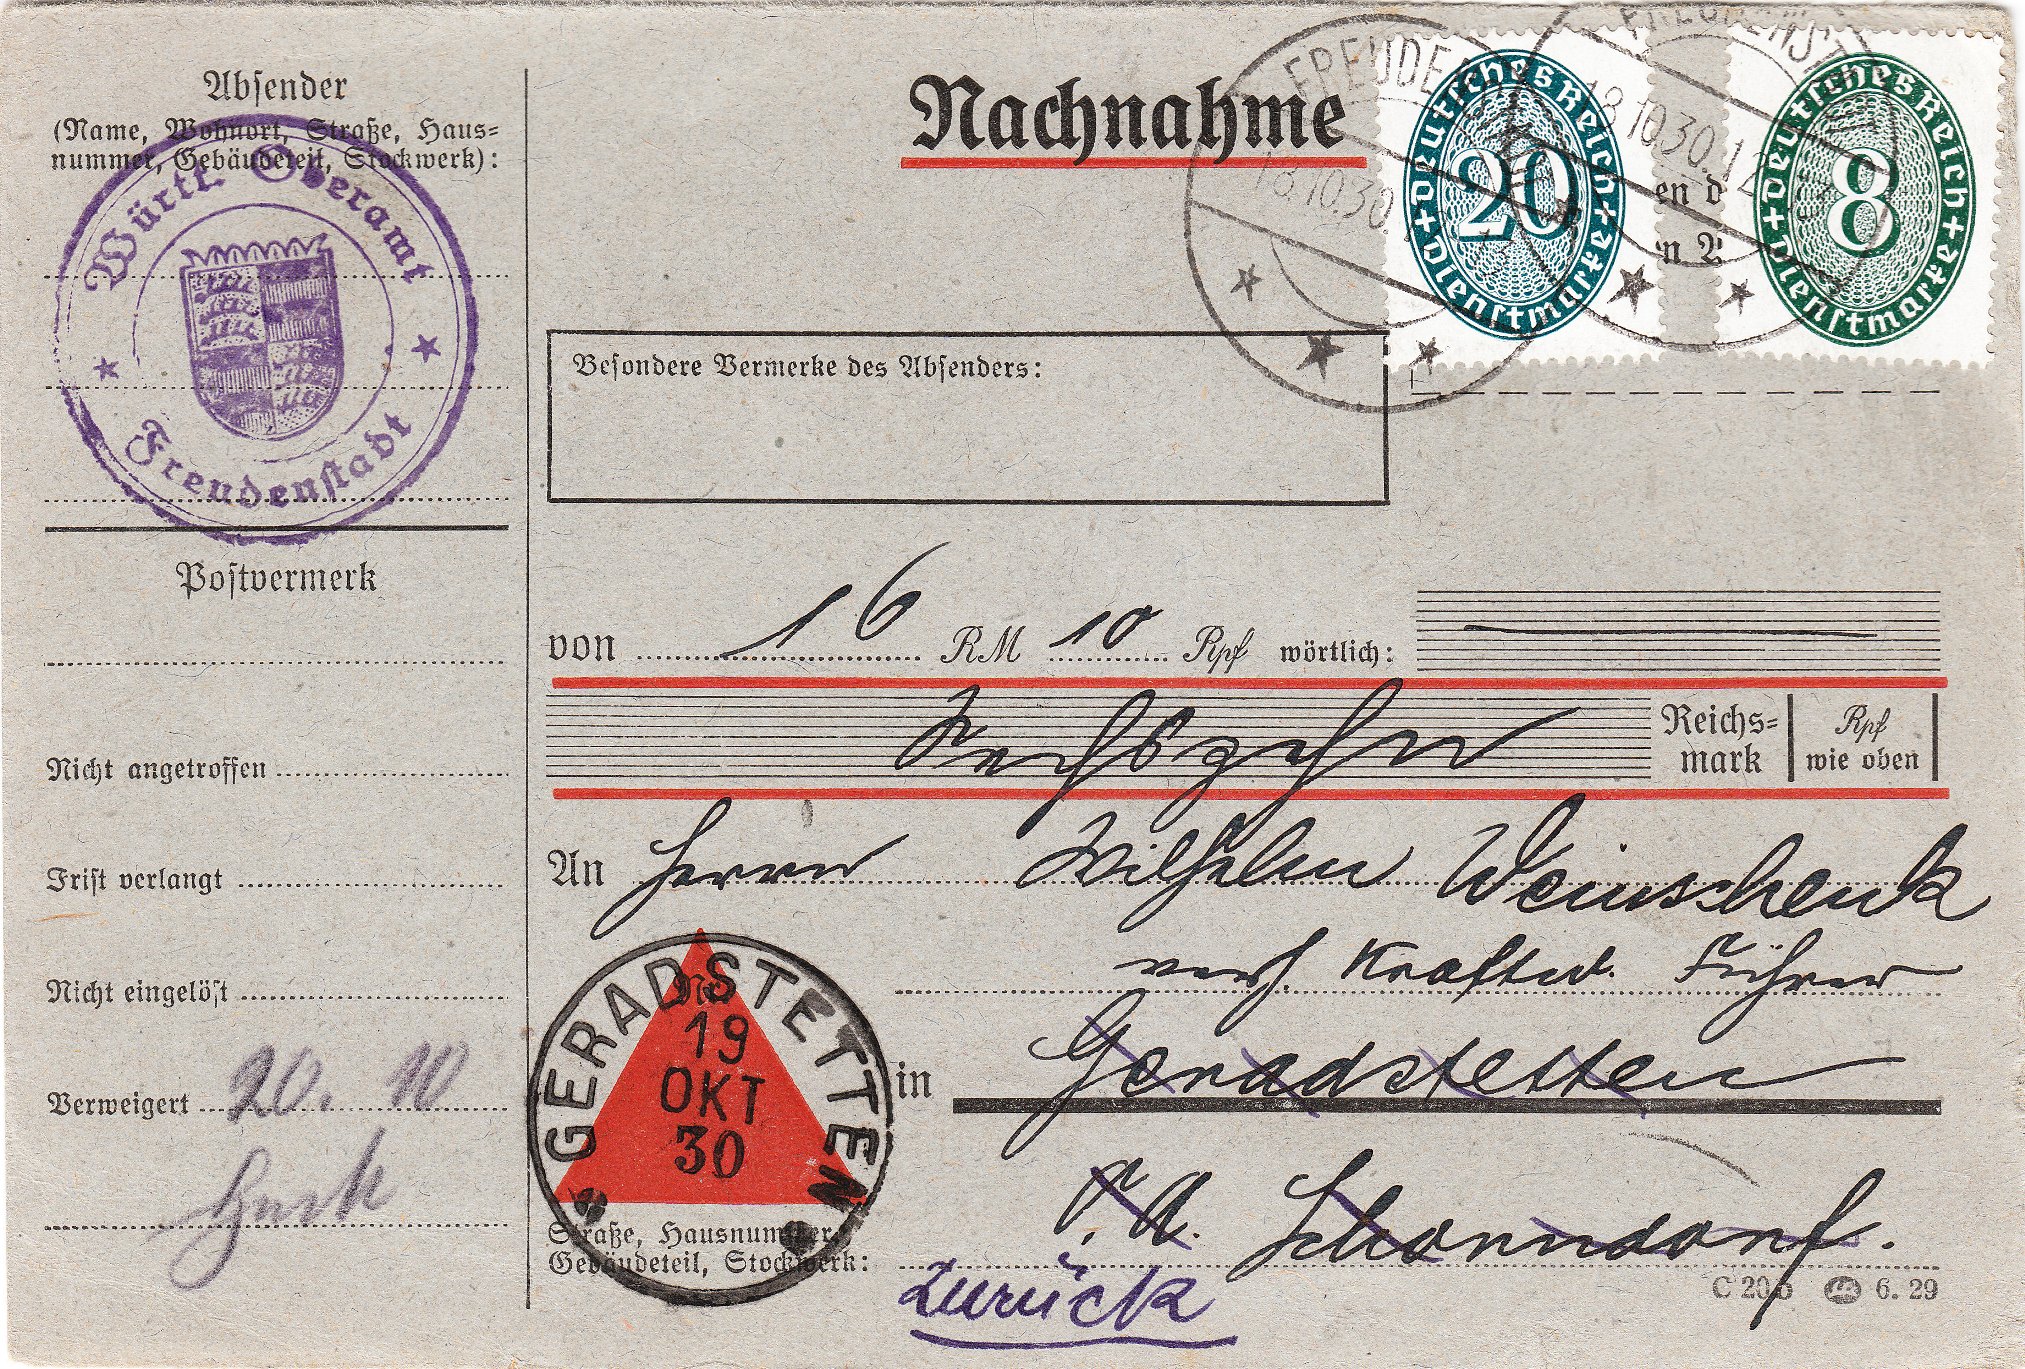 Absender
(Name, Wohnort, Straße, Haus=
nummer, Gebäudeteil, Stockwerk):
Württ. Oberamt
Freudenstadt
Nachnahme
FREUDENST
18.10.30.12
FREUDE
18.10.30.
Deutsches Reich
20
Dienstmarke
Deutsches Reich
8
Dienstmarke
en d
n 2
Besondere Vermerke des Absenders:
Postvermerk
von 16 RM 10 Rpf wörtlich:
Sechszehn Reichs= Rpf
mark wie oben
Nicht angetroffen
An Herrn Wilhelm Weinschenk
Frist verlangt
verh. Kraftw. Führer
Nicht eingelöst
GERADSTETTEN
Nr
19
OKT
30
in Geradstetten
Verweigert 20. 10
O.A. Schorndorf.
Straße, Hausnummer,
Gebäudeteil, Stockwerk:
C 20b 6. 29
Zurück